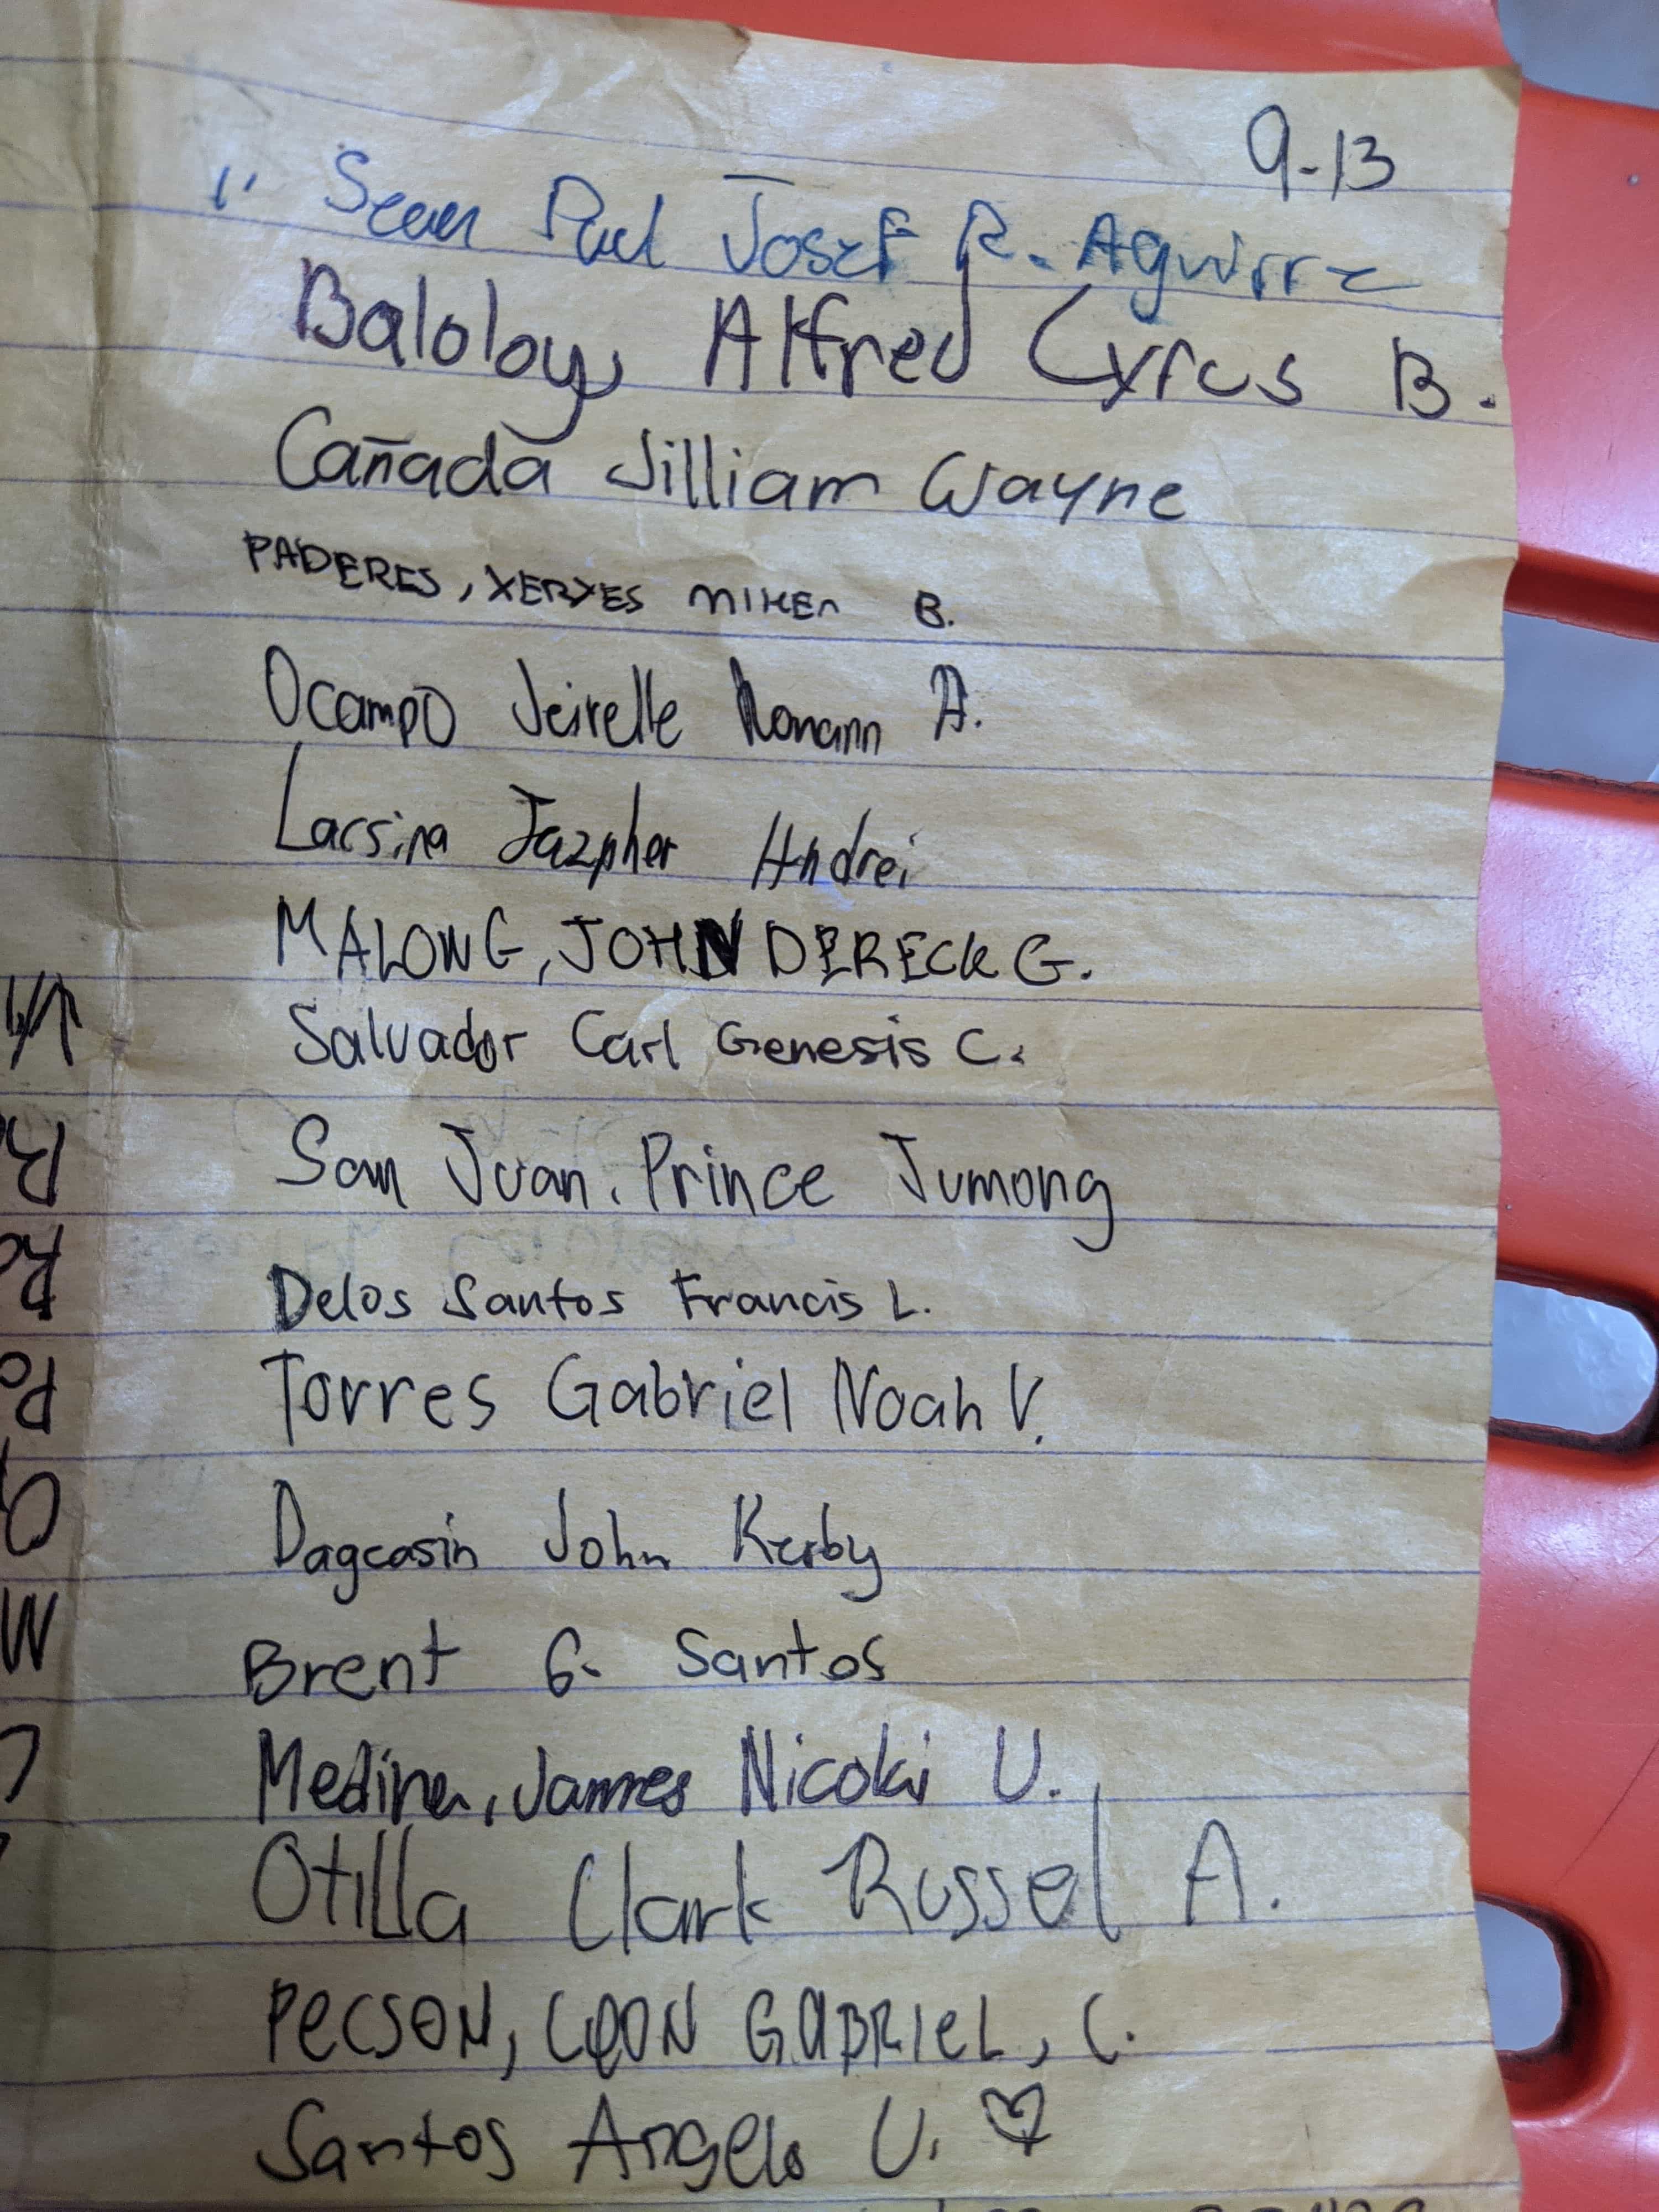 9-13
" Sean Paul Josef R. Aguirre
Baloloy, Alfred Cyrus B.
Cañada Jilliam Wayne
PADERES, XERXES MIKEA B.
Ocampo Jeirelle Romann A.
Lacsina Jazpher Andrei
MALONG, JOHN DERECK G.
Salvador Carl Genesis C.
San Juan. Prince Jumong
Delos Santos Francis L.
Torres Gabriel Noah V.
Dagcasin John Kerby
Brent G. Santos
Medina, James Nicolai U.
Otilla Clark Russel A.
PeCSON, LEON GABRIeL, C.
Santos Angelo U. ♡